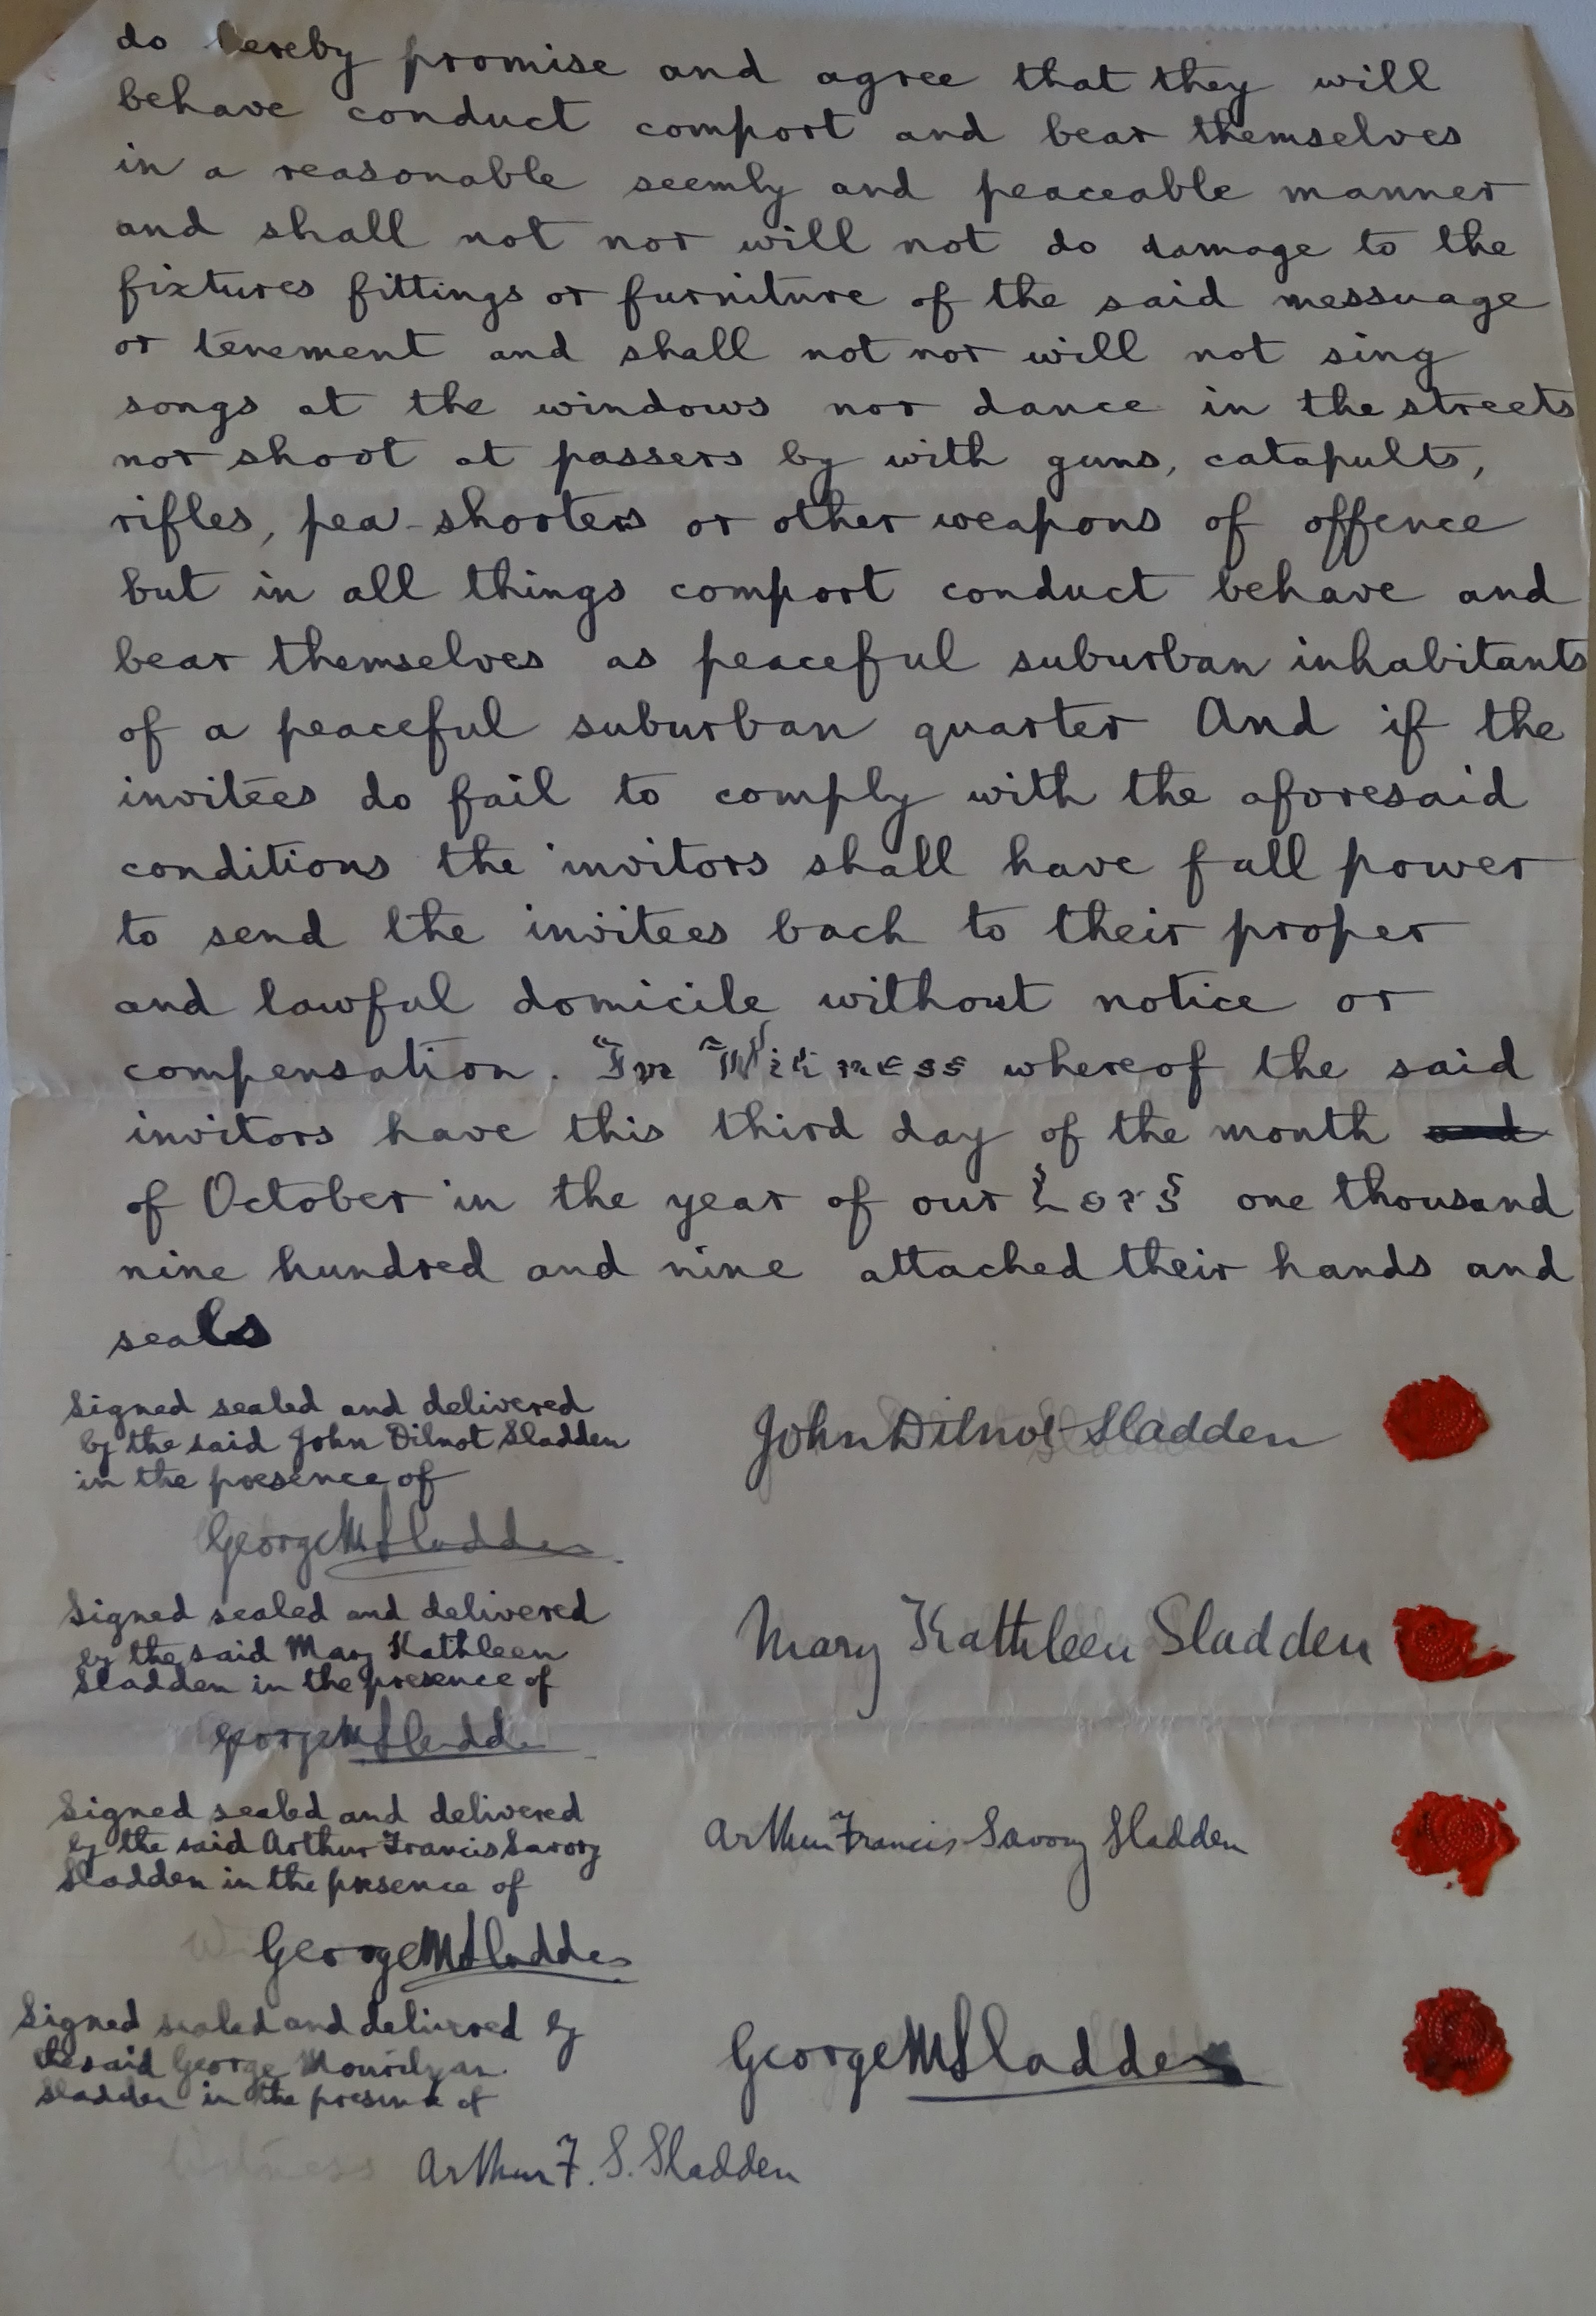 do hereby promise and agree that they will
behave conduct comport and bear themselves
in a reasonable seemly and peaceable manner
and shall not nor will not do damage to the
fixtures fittings or furniture of the said messuage
or tenement and shall not nor will not sing
songs at the windows nor dance in the streets
nor shoot at passers by with guns, catapults,
rifles, pea-shooters or other weapons of offence
but in all things comport conduct behave and
bear themselves as peaceful suburban inhabitants
of a peaceful suburban quarter And if the
invitees do fail to comply with the aforesaid
conditions the invitors shall have full power
to send the invitees back to their proper
and lawful domicile without notice or
compensation. In Witness whereof the said
invitors have this third day of the month and
of October in the year of our Lord one thousand
nine hundred and nine attached their hands and
seals
Signed sealed and delivered
by the said John Dilnot Sladden
in the presence of
John Dilnot Sladden
George M Sladden
Signed sealed and delivered
by the said Mary Kathleen
Sladden in the presence of
Mary Kathleen Sladden
George M Sladden
Signed sealed and delivered
by the said Arthur Francis Savory
Sladden in the presence of
Arthur Francis Savory Sladden
George M Sladden
Signed sealed and delivered by
the said George Mourilyan
Sladden in the presence of
George M Sladden
Witness Arthur F. S. Sladden